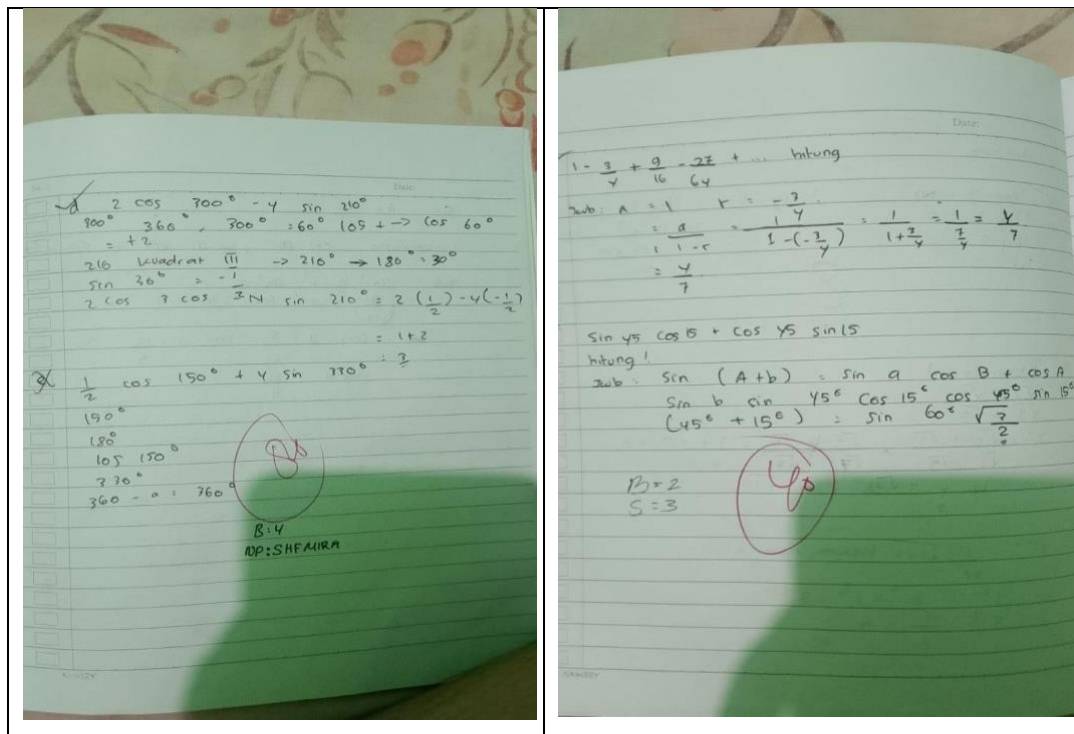 No.
Date:
2 cos 300° - 4 sin 210°
300° 360°, 300° = 60° cos + -> cos 60°
= +2
210 kuadrat III -> 210° -> 180° = 30°
sin 30° = -1/2
2 cos 3 cos sin 210° = 2 (1/2) - 4 (-1/2)
= 1+2
= 3
1/2 cos 150° + 4 sin 330°
150°
180°
cos 150°
330°
360 - a = 360°
80
B: 4
NP: SHEMIRA
Date:
1 - 3/4 + 9/16 - 27/64 + ... hitung
Jwb: A = 1 r = -3/4
= a/1-r = 1/1-(-3/4) = 1/1+3/4 = 1/7/4 = 4/7
= 4/7
sin 45 cos 15 + cos 45 sin 15
hitung!
Jwb: sin (A+b) = sin a cos B + cos A
sin b sin 45° cos 15° cos 45° sin 15°
(45° + 15°) = sin 60° √3/2
B = 2
S = 3
40